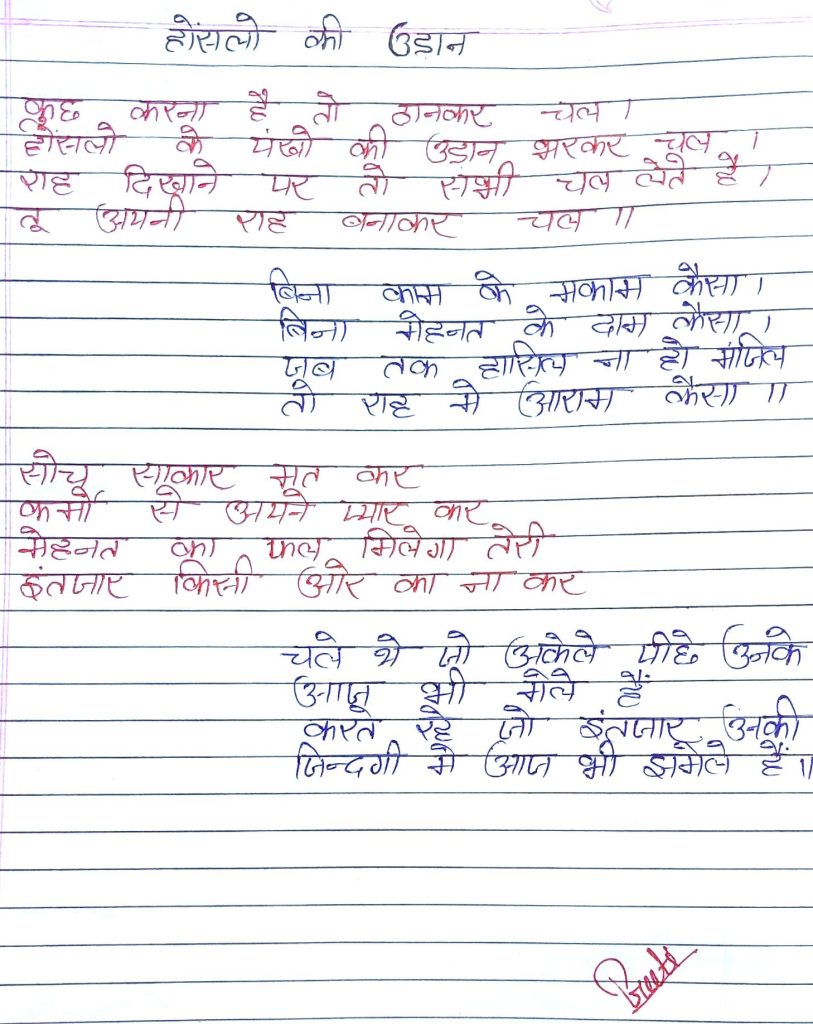 होंसलो की उडान
कुछ करना है तो ठानकर चल।
होंसलो के पंखो की उडान भरकर चल।
राह दिखाने पर तो सभी चल लेते है।
तू अपनी राह बनाकर चल॥
बिना काम के मकाम कैसा।
बिना मेहनत के दाम कैसा।
जब तक हासिल ना हो मंजिल
तो राह मे आराम कैसा॥
सोच साकार मत कर
कर्मो से अपने प्यार कर
मेहनत का फल मिलेगा तेरी
इंतजार किसी ओर का ना कर
चले थे जो अकेले पीछे उनके
आज भी मेले हैं
करते रहे जो इंतजार उनकी
जिन्दगी मे आज भी झमेले हैं॥